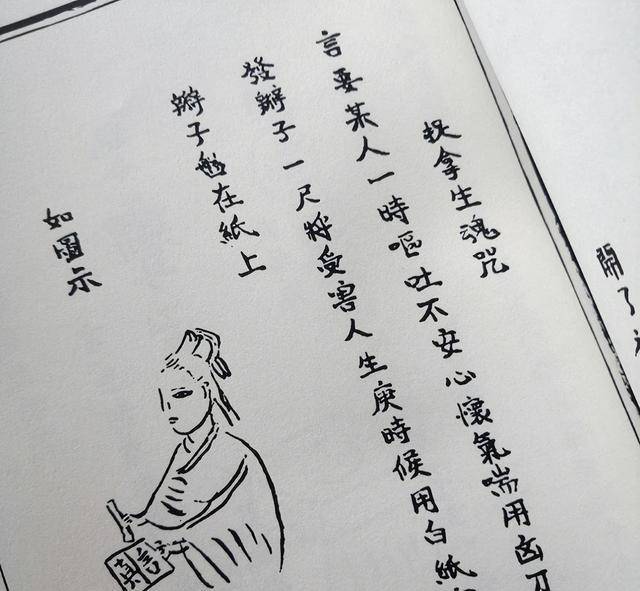 開了
捉拿生魂咒
言要某人一時嘔吐不安心懷氣喘用
發辮子一尺將受害人生庚時候用白紙
辮子在紙上
如圖示
真言